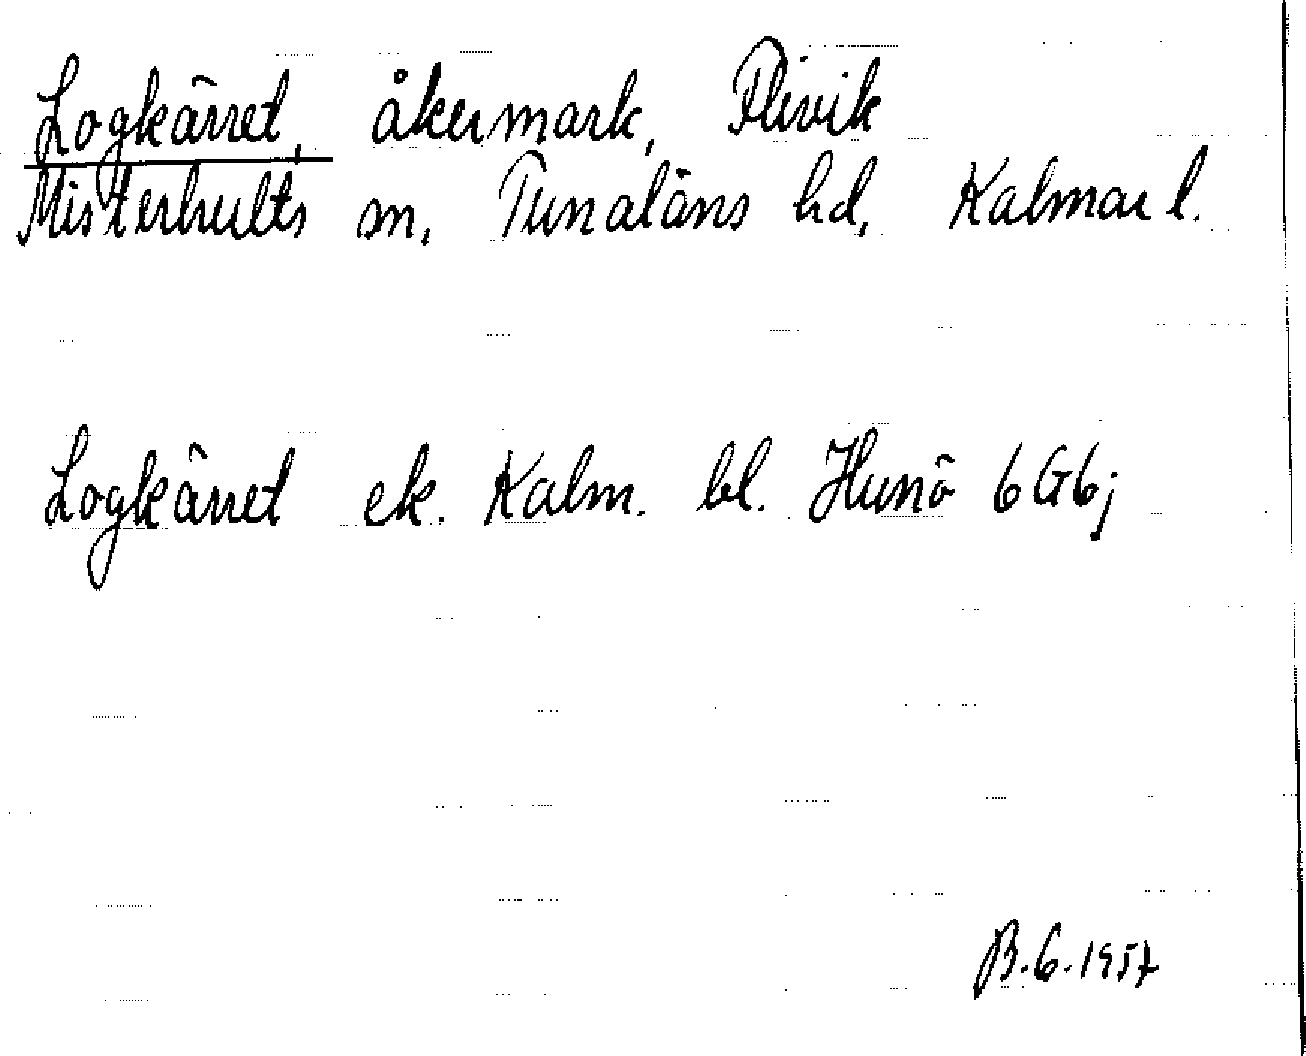 Logkärret, åkermark, Flivik
Misterhults sn, Tunaläns hd, Kalmar l.
Logkärret ek. Kalm. bl. Hunö 6G6j
B.G.1957